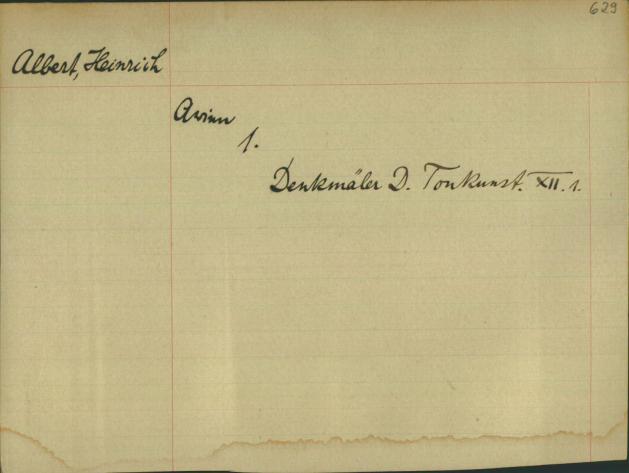 629
Albert, Heinrich
Arien
1.
Denkmäler D. Tonkunst. XII. 1.